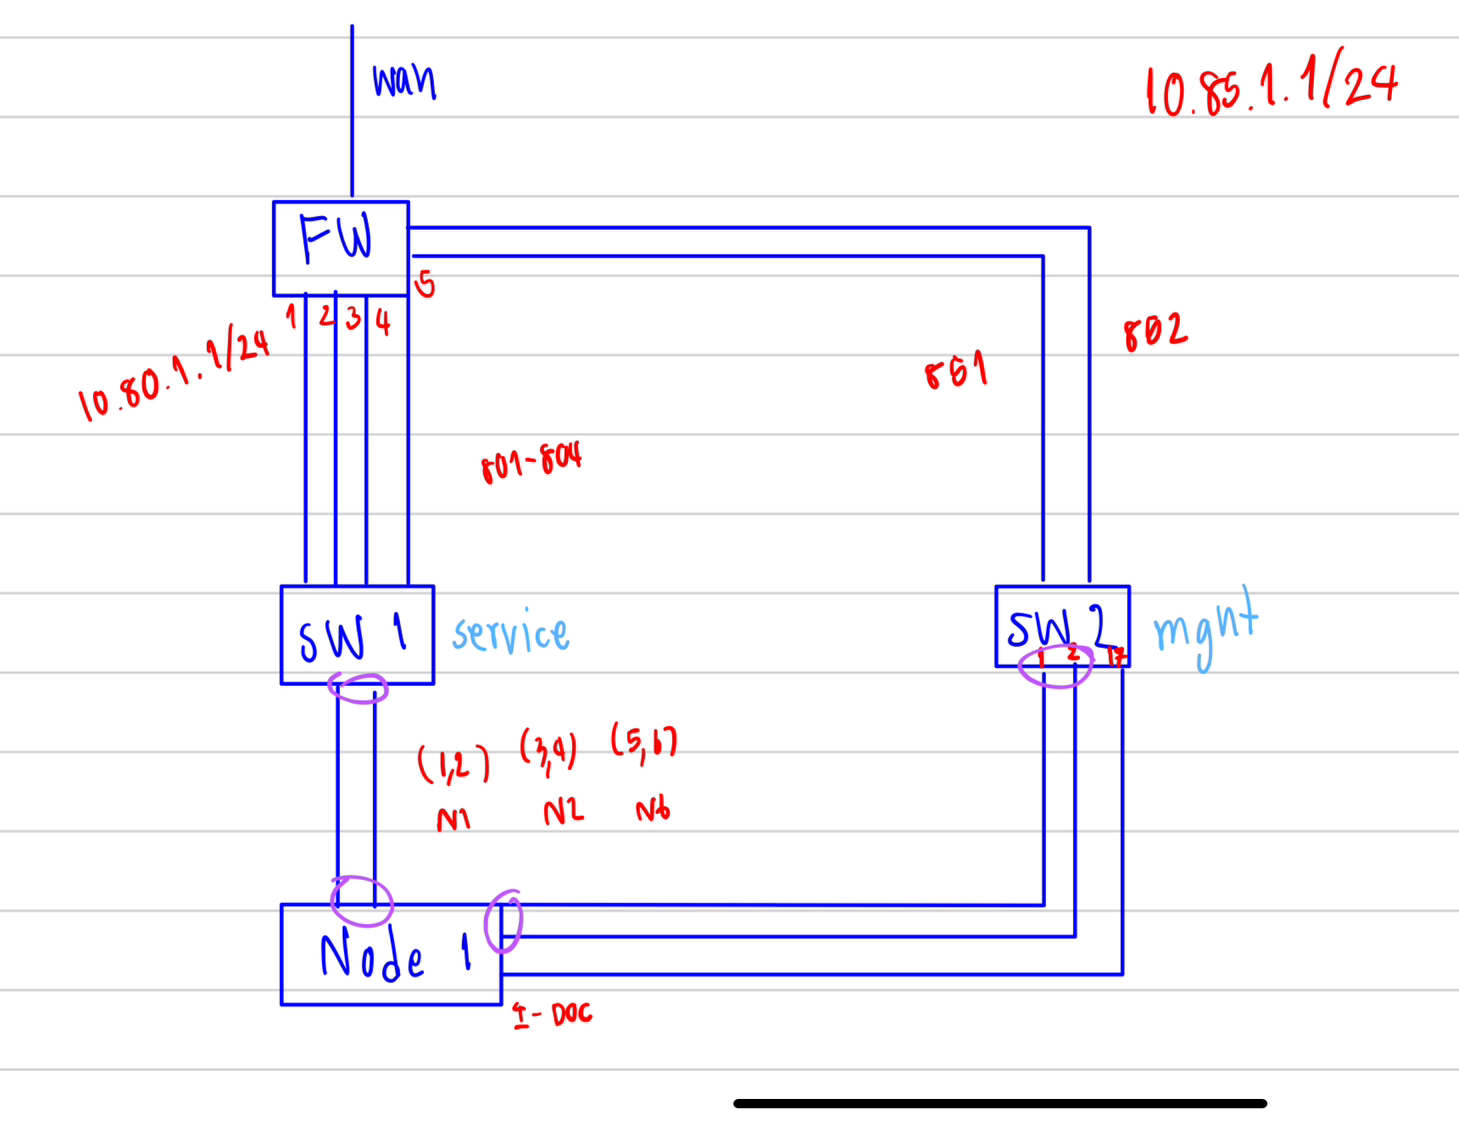 wan
10.85.1.1/24
FW
5
1 2 3 4
10.80.1.1/24
802
861
801-804
SW 1
service
SW 2
mgnt
1 2 17
(1,2) (3,4) (5,6)
N1 N2 N6
Node 1
I-DOC